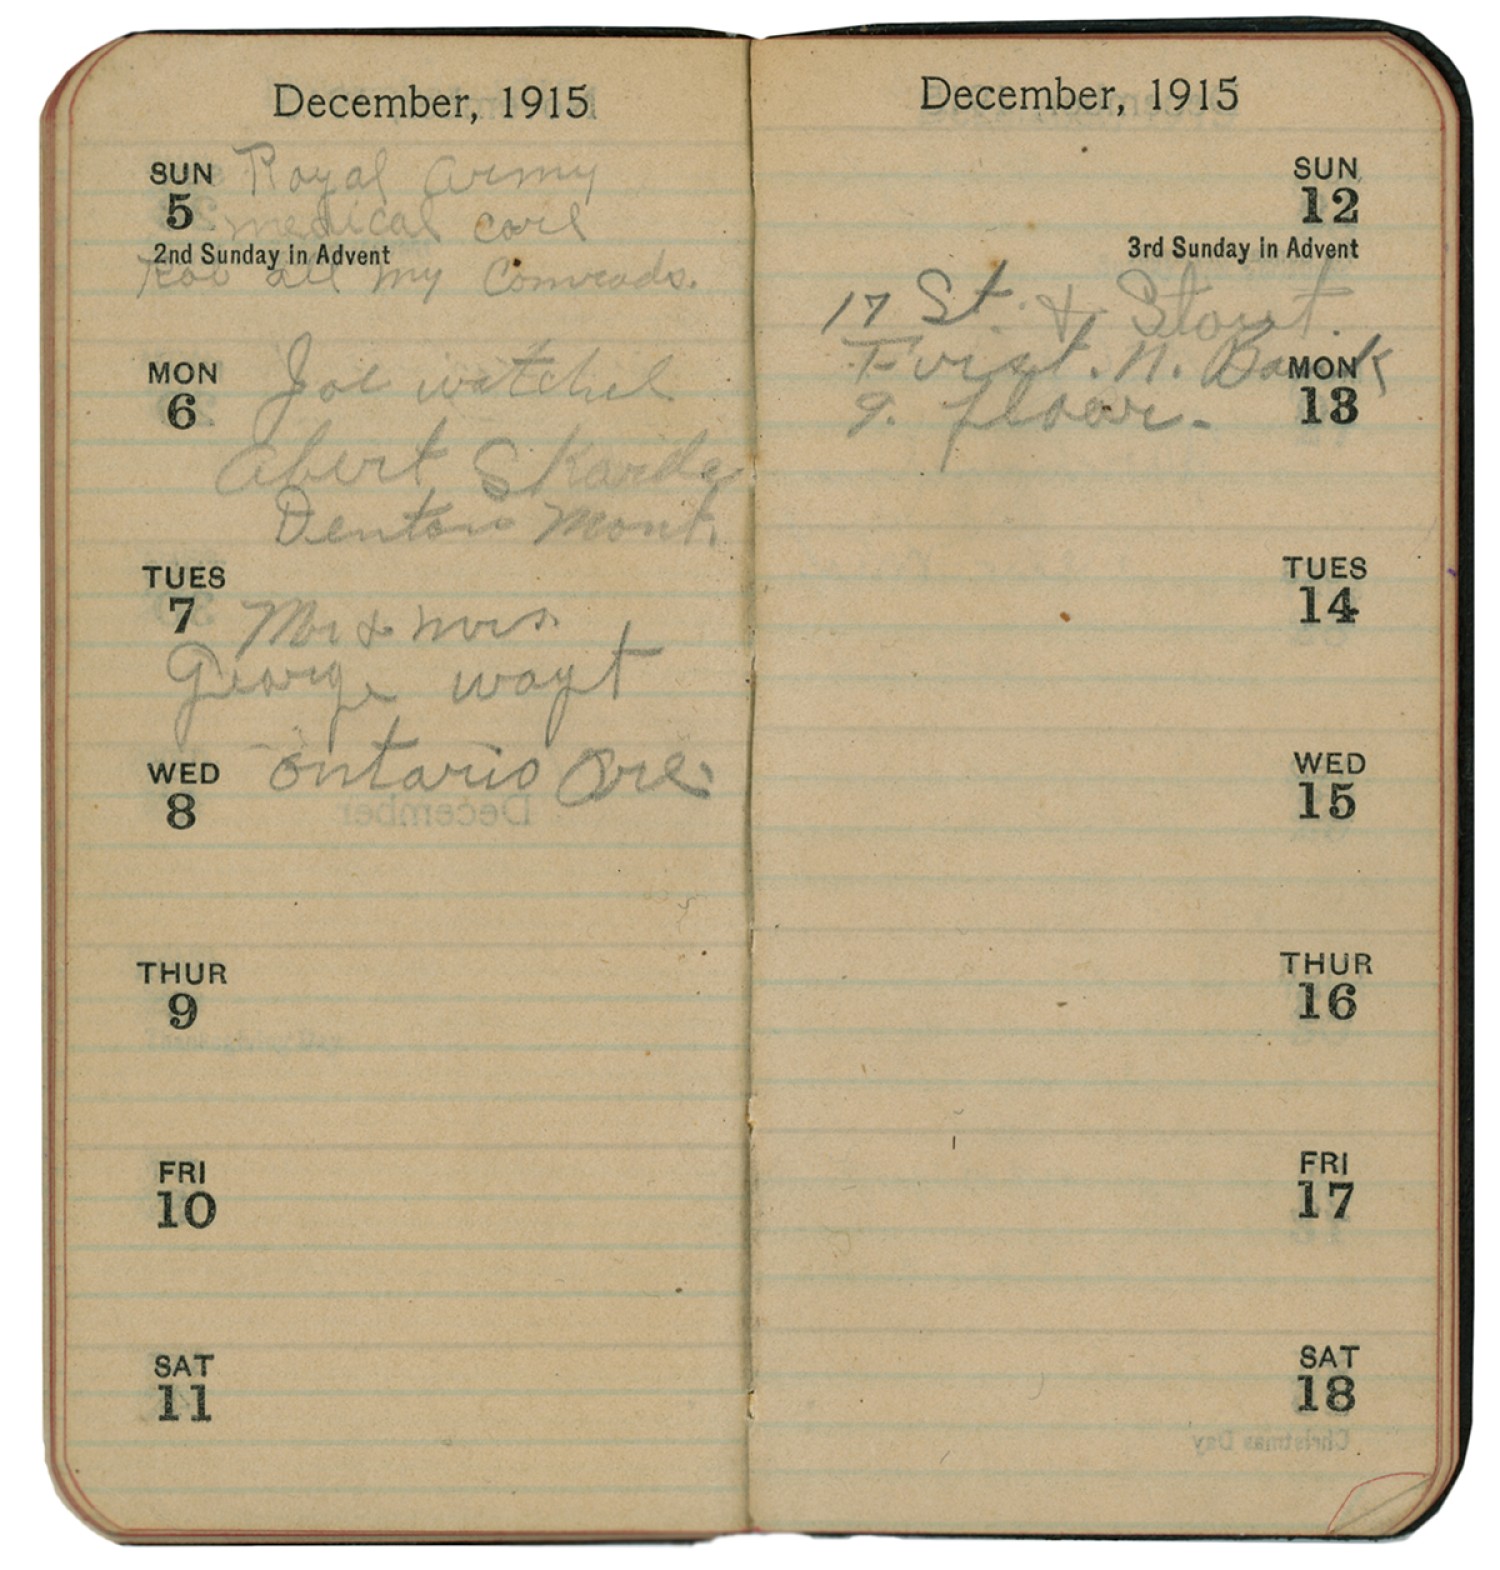 December, 1915
SUN
5
Royal Army
medical corl
2nd Sunday in Advent
all my Comrads.
MON
6
Joe watchel
Abert Skarda
Denton Mont.
TUES
7
Mr & Mrs.
George wayt
WED
8
ontario Ore.
THUR
9
FRI
10
SAT
11
December, 1915
SUN
12
3rd Sunday in Advent
17 St. & Stout.
First. N. Bank
MON
13
9. floor.
TUES
14
WED
15
THUR
16
FRI
17
SAT
18